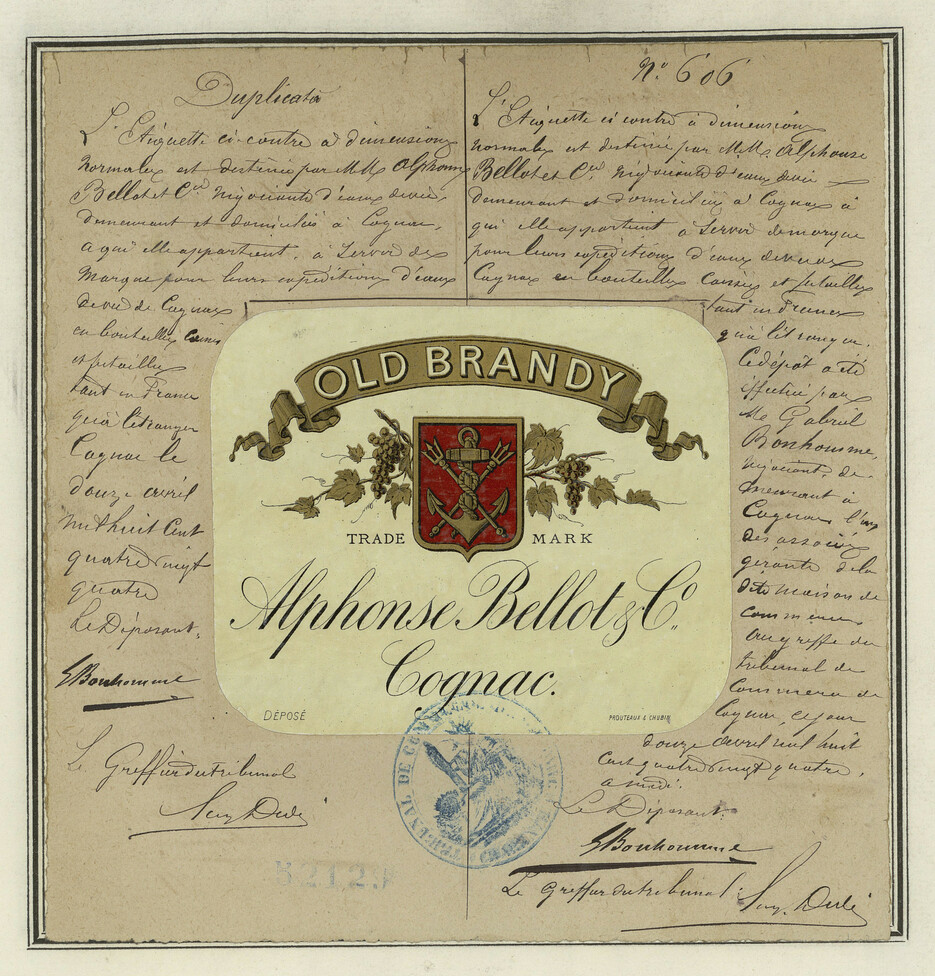 Duplicata
L'Etiquette ci-contre à dimensions
normales est destinée par MM Alphonse
Bellot et Cie Négociants d'eaux de vie,
demeurant et domiciliés à Cognac,
à qui elle appartient, à Servir de
Marque pour leurs expéditions d'eaux
de vie de Cognac
en bouteilles caisses
et futailles
tant en France
qu'à l'étranger
Cognac le
douze avril
mil huit Cent
quatre vingt
quatre
Le Déposant,
GBonhomme
Le Greffier du tribunal
No 606
L'Etiquette ci contre à dimensions
normales est destinée par M.M. Alphonse
Bellot et Cie Négociants d'eaux de vie
demeurant et domiciliés à Cognac à
qui elle appartient à Servir de marque
pour leurs expéditions d'eaux de vie de
Cognac en bouteilles Caisses et futailles
tant en France
qu'à l'étranger.
Ce dépôt a été
effectué par
Me Gabriel
Bonhomme,
négociant, de-
meurant à
Cognac l'un
des associés
gérants de la
dite maison de
commerce
au greffe du
tribunal de
Commerce de
Cognac, ce jour
douze avril mil huit
Cent quatre vingt quatre,
à midi.
Le Déposant.
GBonhomme
Le Greffier du tribunal.
OLD BRANDY
TRADE MARK
Alphonse Bellot & Co.
Cognac.
DÉPOSÉ
PROUTEAUX & CHUBIN
TRIBUNAL DE COMMERCE
CHARENTE